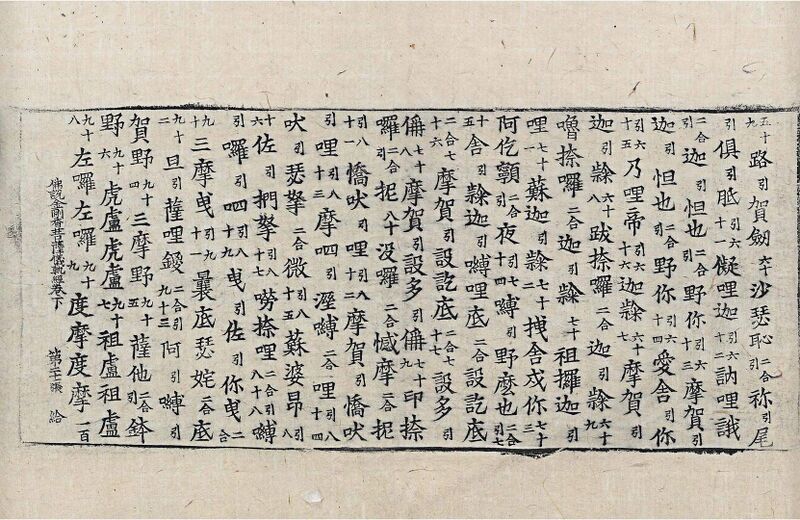 五十九路引賀劒六十沙瑟恥二合引祢尾
引俱胝引六十一儗哩迦引六十二訥哩誐
二合引迦引怛也二合野你引六十三摩賀引
迦引怛也二合野你引六十四愛舍引你
引六十五乃哩帝引六十六迦隸六十七摩賀引
迦引隸六十八跋捺囉二合迦引隸六十九
嚕捺囉二合迦引隸七十祖攞迦引
哩七十一蘇迦引隸七十二拽舍戍你七十三
阿仡顫二合引夜引嚩七十四野麼也二合引七
十五舍引隸迦引嚩哩底引設訖底
二合七十六摩賀引設訖底二合七十七設多引
倆七十八摩賀引設多引倆七十九印捺
囉二合抳八十沒囉二合憾摩二合抳
引八十一憍吠引哩引八十二摩賀引憍吠
引哩引八十三摩呬引濕嚩二合哩引八十四
吠引瑟拏二合微引八十五蘇婆昂引八
十六佐引捫拏引八十七嘮捺哩二合引八十八嚩
引囉引呬引八十九曳引佐引你曳二合
九十三摩曳引九十一曩底瑟姹二合底
九十二旦引薩哩鍐二合引九十三阿引嚩引
賀野九十四三摩野九十五薩他二合鉢
野九十六虎盧虎盧九十七祖盧祖盧
九十八左囉左囉九十九度摩度摩一百
佛說金剛香菩薩儀軌經卷下 張 給